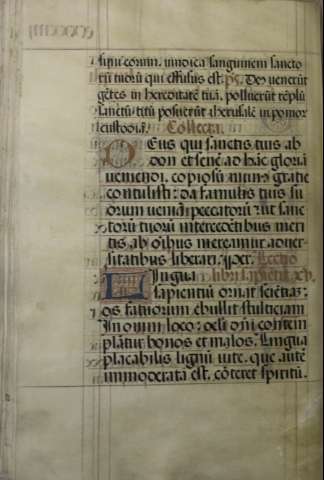 sinu eorum. vindica sanguinem sancto
rũ tuorũ qui effusus est. ps. Deus venerũt
gẽtes in hereditatẽ tuã, polluerũt tẽplũ
sanctũ tuũ posuerũt iherusalẽ in pomor
custodiã. Collecta.
DEus qui sanctis tuis ab
don et senẽ ad hãc gloriã
veniendi, copiosũ munus gratie
contulisti: da famulis tuis su
orum veniã peccatorũ: ut sanc
torũ tuorũ intercedẽtibus meri
tis ab oĩbus mereamur aduer
sitatibus liberari. per. Lectio
LIngua libri sapientie. xv.
sapientiũ ornat sciẽtiã:
os fatuorum ebullit stulticiam
In omni loco: oculi dñi contem
plãtur bonos et malos. Lingua
placabilis lignũ vite, que autẽ
immoderata est, cõteret spiritũ.